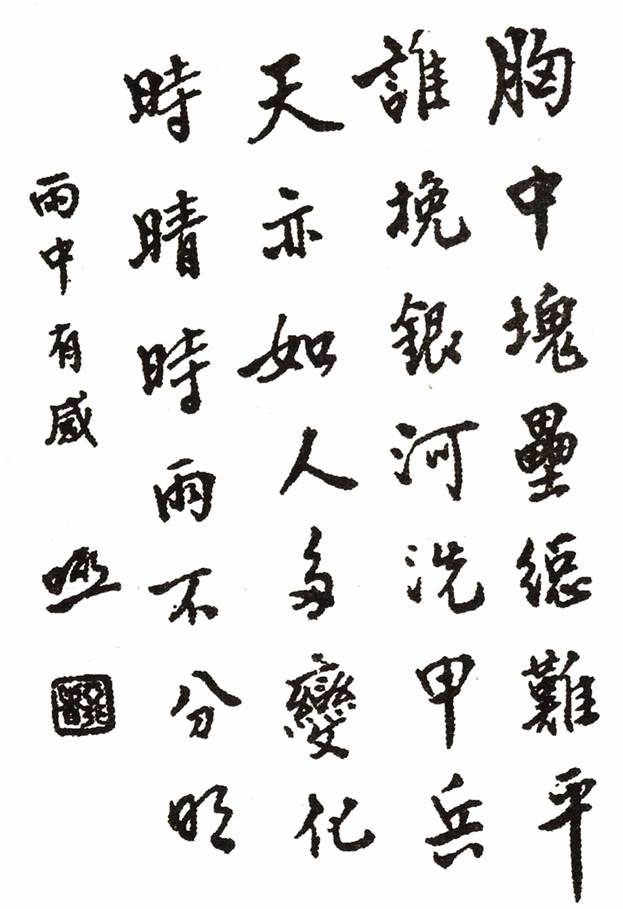 胸中塊壘總難平
誰挽銀河洗甲兵
天亦如人多變化
時晴時雨不分明
雨中有感